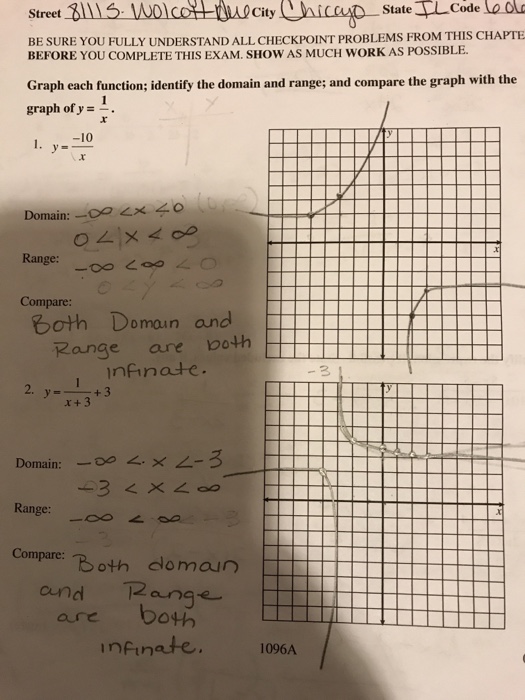 Street 8111 S. Wolcott Ave City Chicago State IL Code
BE SURE YOU FULLY UNDERSTAND ALL CHECKPOINT PROBLEMS FROM THIS CHAPTE
BEFORE YOU COMPLETE THIS EXAM. SHOW AS MUCH WORK AS POSSIBLE.
Graph each function; identify the domain and range; and compare the graph with the
graph of y = 1/x.
1. y = -10/x
y
x
Domain: -∞ < x < 0
0 < x < ∞
Range: -∞ < ∞ < 0
0 < y < ∞
Compare:
Both Domain and
Range are both
infinate.
-3
2. y = 1/(x + 3) + 3
y
x
Domain: -∞ < x < -3
-3 < x < ∞
Range: -∞ < ∞
Compare: Both domain
and Range
are both
infinate.
1096A